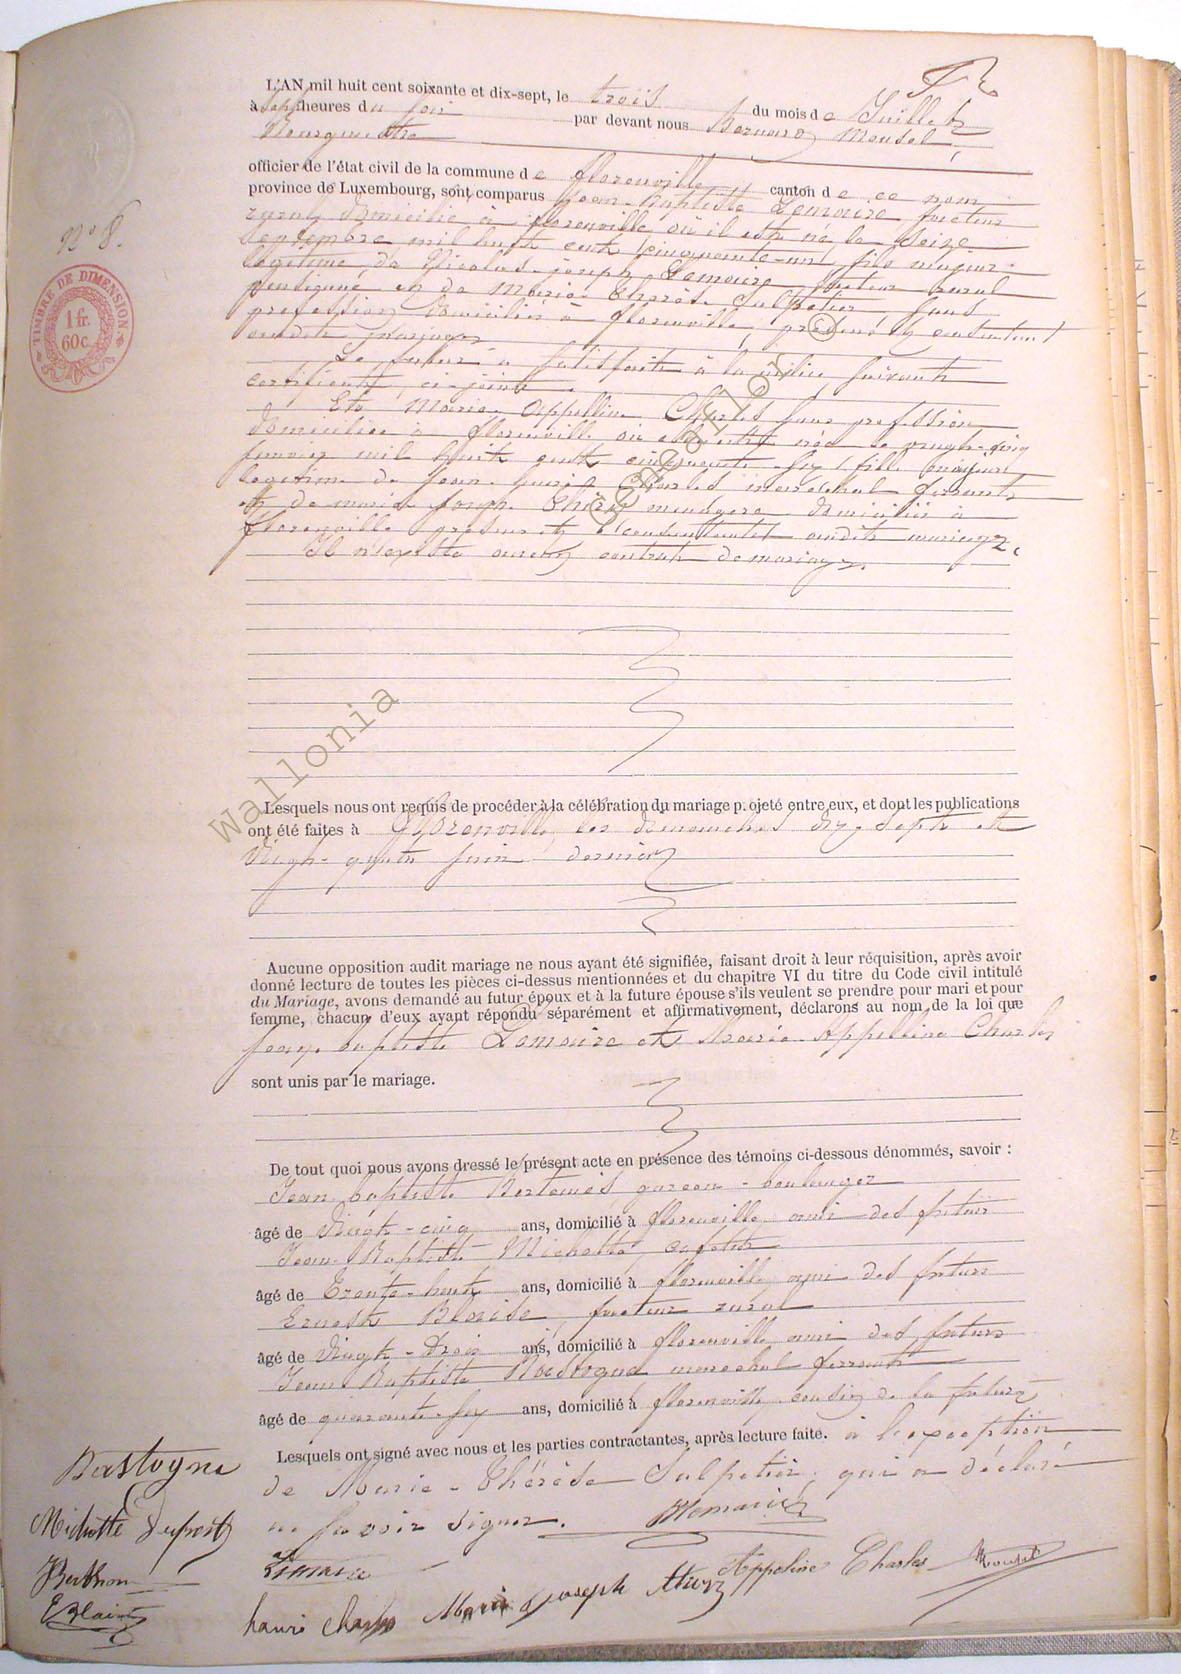 L'AN mil huit cent soixante et dix-sept, le trois du mois de Juillet
à sept heures du soir par devant nous Bernard Mousel
Bourgmestre
officier de l'état civil de la commune de florenville canton de ce nom
province de Luxembourg, sont comparus Jean-Baptiste Lemaire facteur
rural domicilié à florenville où il est né le seize
septembre mil huit cent cinquante-un fils majeur
légitime de Nicolas-joseph Lemaire facteur rural
et de Marie Thérèse Sulpetier sans
profession domiciliés à florenville, présens et consentant
audit mariage
Le futur a satisfait à la milice suivant
certificat ci-joint.
Et Marie Appolline Charles sans profession
domiciliée à florenville où elle est née le vingt-cinq
janvier mil huit cent cinquante-six fille majeure
légitime de Jean henri Charles maréchal ferrant
et de marie joseph Thiry ménagère domiciliés à
florenville présens et consentant audit mariage.
Il n'existe aucun contrat de mariage.
N° 8.
TIMBRE DE DIMENSION
1 fr.
60 c.
Genealo
Wallonia
Lesquels nous ont requis de procéder à la célébration du mariage projeté entre eux, et dont les publications
ont été faites à florenville les dimanches dix-sept et
vingt-quatre juin dernier
Aucune opposition audit mariage ne nous ayant été signifiée, faisant droit à leur réquisition, après avoir
donné lecture de toutes les pièces ci-dessus mentionnées et du chapitre VI du titre du Code civil intitulé
du Mariage, avons demandé au futur époux et à la future épouse s'ils veulent se prendre pour mari et pour
femme, chacun d'eux ayant répondu séparément et affirmativement, déclarons au nom de la loi que
Jean baptiste Lemaire et Marie Appolline Charles
sont unis par le mariage.
De tout quoi nous avons dressé le présent acte en présence des témoins ci-dessous dénommés, savoir :
Jean baptiste garçon-boulanger
âgé de Vingt-cinq ans, domicilié à florenville ami des futurs
Jean Baptiste Michotte
âgé de Trente-huit ans, domicilié à florenville ami des futurs
Ernest Blaise, facteur rural
âgé de Vingt-trois ans, domicilié à florenville ami des futurs
Jean Baptiste Bastogne maréchal ferrant
âgé de quarante-six ans, domicilié à florenville cousin de la future
Lesquels ont signé avec nous et les parties contractantes, après lecture faite. à l'exception
de Marie-Thérèse Sulpetier qui a déclaré
ne savoir signer.
Bastogne
Michotte Dupont
EBlaise
Lemaire
henri Charles Marie Joseph Thiry Appoline Charles Mousel